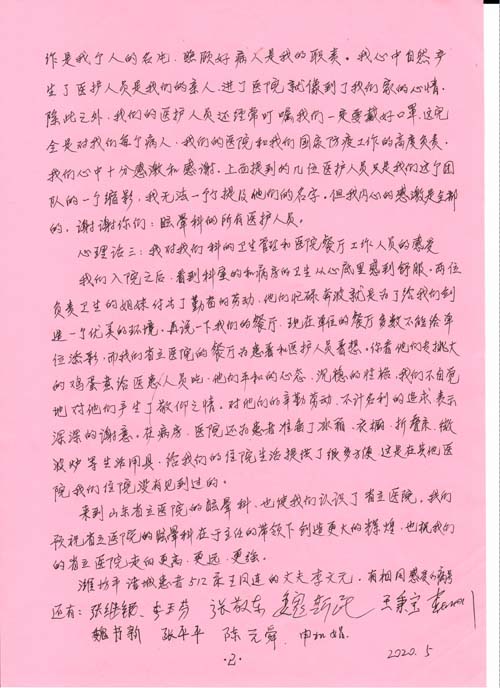 作是我个人的名片，照顾好病人是我的职责。我心中自然产
生了医护人员是我们的亲人，进了医院就像到了我们家的心情。
除此之外，我们的医护人员还经常叮嘱我们一定要戴好口罩，这完
全是对我们每个病人，我们的医院和我们国家防疫工作的高度负责。
我们心中十分感激和感谢。上面提到的几位医护人员只是我们这个团
队的一个缩影，我无法一个个提及他们的名字。但我内心的感激是全部
的，谢谢你们：眩晕科的所有医护人员。
心理话三：我对我们科的卫生管理和医院餐厅工作人员的感受
我们入院之后，看到科里的和病房的卫生从心底里感到舒服。两位
负责卫生的姐妹付出了勤苦的劳动，他们忙碌奔波就是为了给我们创
造一个优美的环境。再说一下我们的餐厅，现在单位的餐厅多数不能给单
位添彩，而我们省立医院的餐厅为患者和医护人员着想。你看他们专挑大
的鸡蛋煮给医患人员吃，他们平和的心态，沉稳的性格，我们不自觉
地对他们产生了敬仰之情。对他们的辛勤劳动，不计名利的追求表示
深深的谢意。在病房，医院还为患者准备了冰箱，衣橱，折叠床，微
波炉等生活用具，给我们的住院生活提供了很多方便，这是在其他医
院我们住院没有见到过的。
来到山东省立医院的眩晕科，也使我们认识了省立医院。我们
预祝省立医院的眩晕科在于主任的带领下创造更大的辉煌，也祝我们
的省立医院走的更高，更远，更强。
潍坊市诸城患者512床王凤连的丈夫李文元。有相同感受的病号
还有：张维锁、李玉芬 张敬东 魏新民 王秉宝
魏书新 张平平 陈元舜
·2·
2020.5